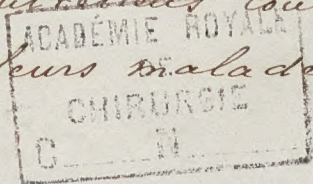 ACADÉMIE ROYALE
leurs malade
DE
CHIRURGIE
C N